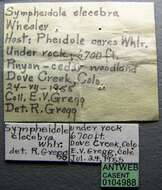 Sympheidole elecebra
Wheeler
Host: Pheidole ceres Whlr.
Under rock, 6700 ft.
Pinyon-cedar woodland
Dove Creek, Colo.
24-VII-1955
Coll. E.V. Gregg
Det. R. Gregg
Sympheidole
elecebra
Whlr.
det. R. Gregg
55
under rock
6700 ft.
Dove Creek, Colo.
E.V. Gregg, Coll.
Jul. 24, 1955
ANTWEB
CASENT
0104988